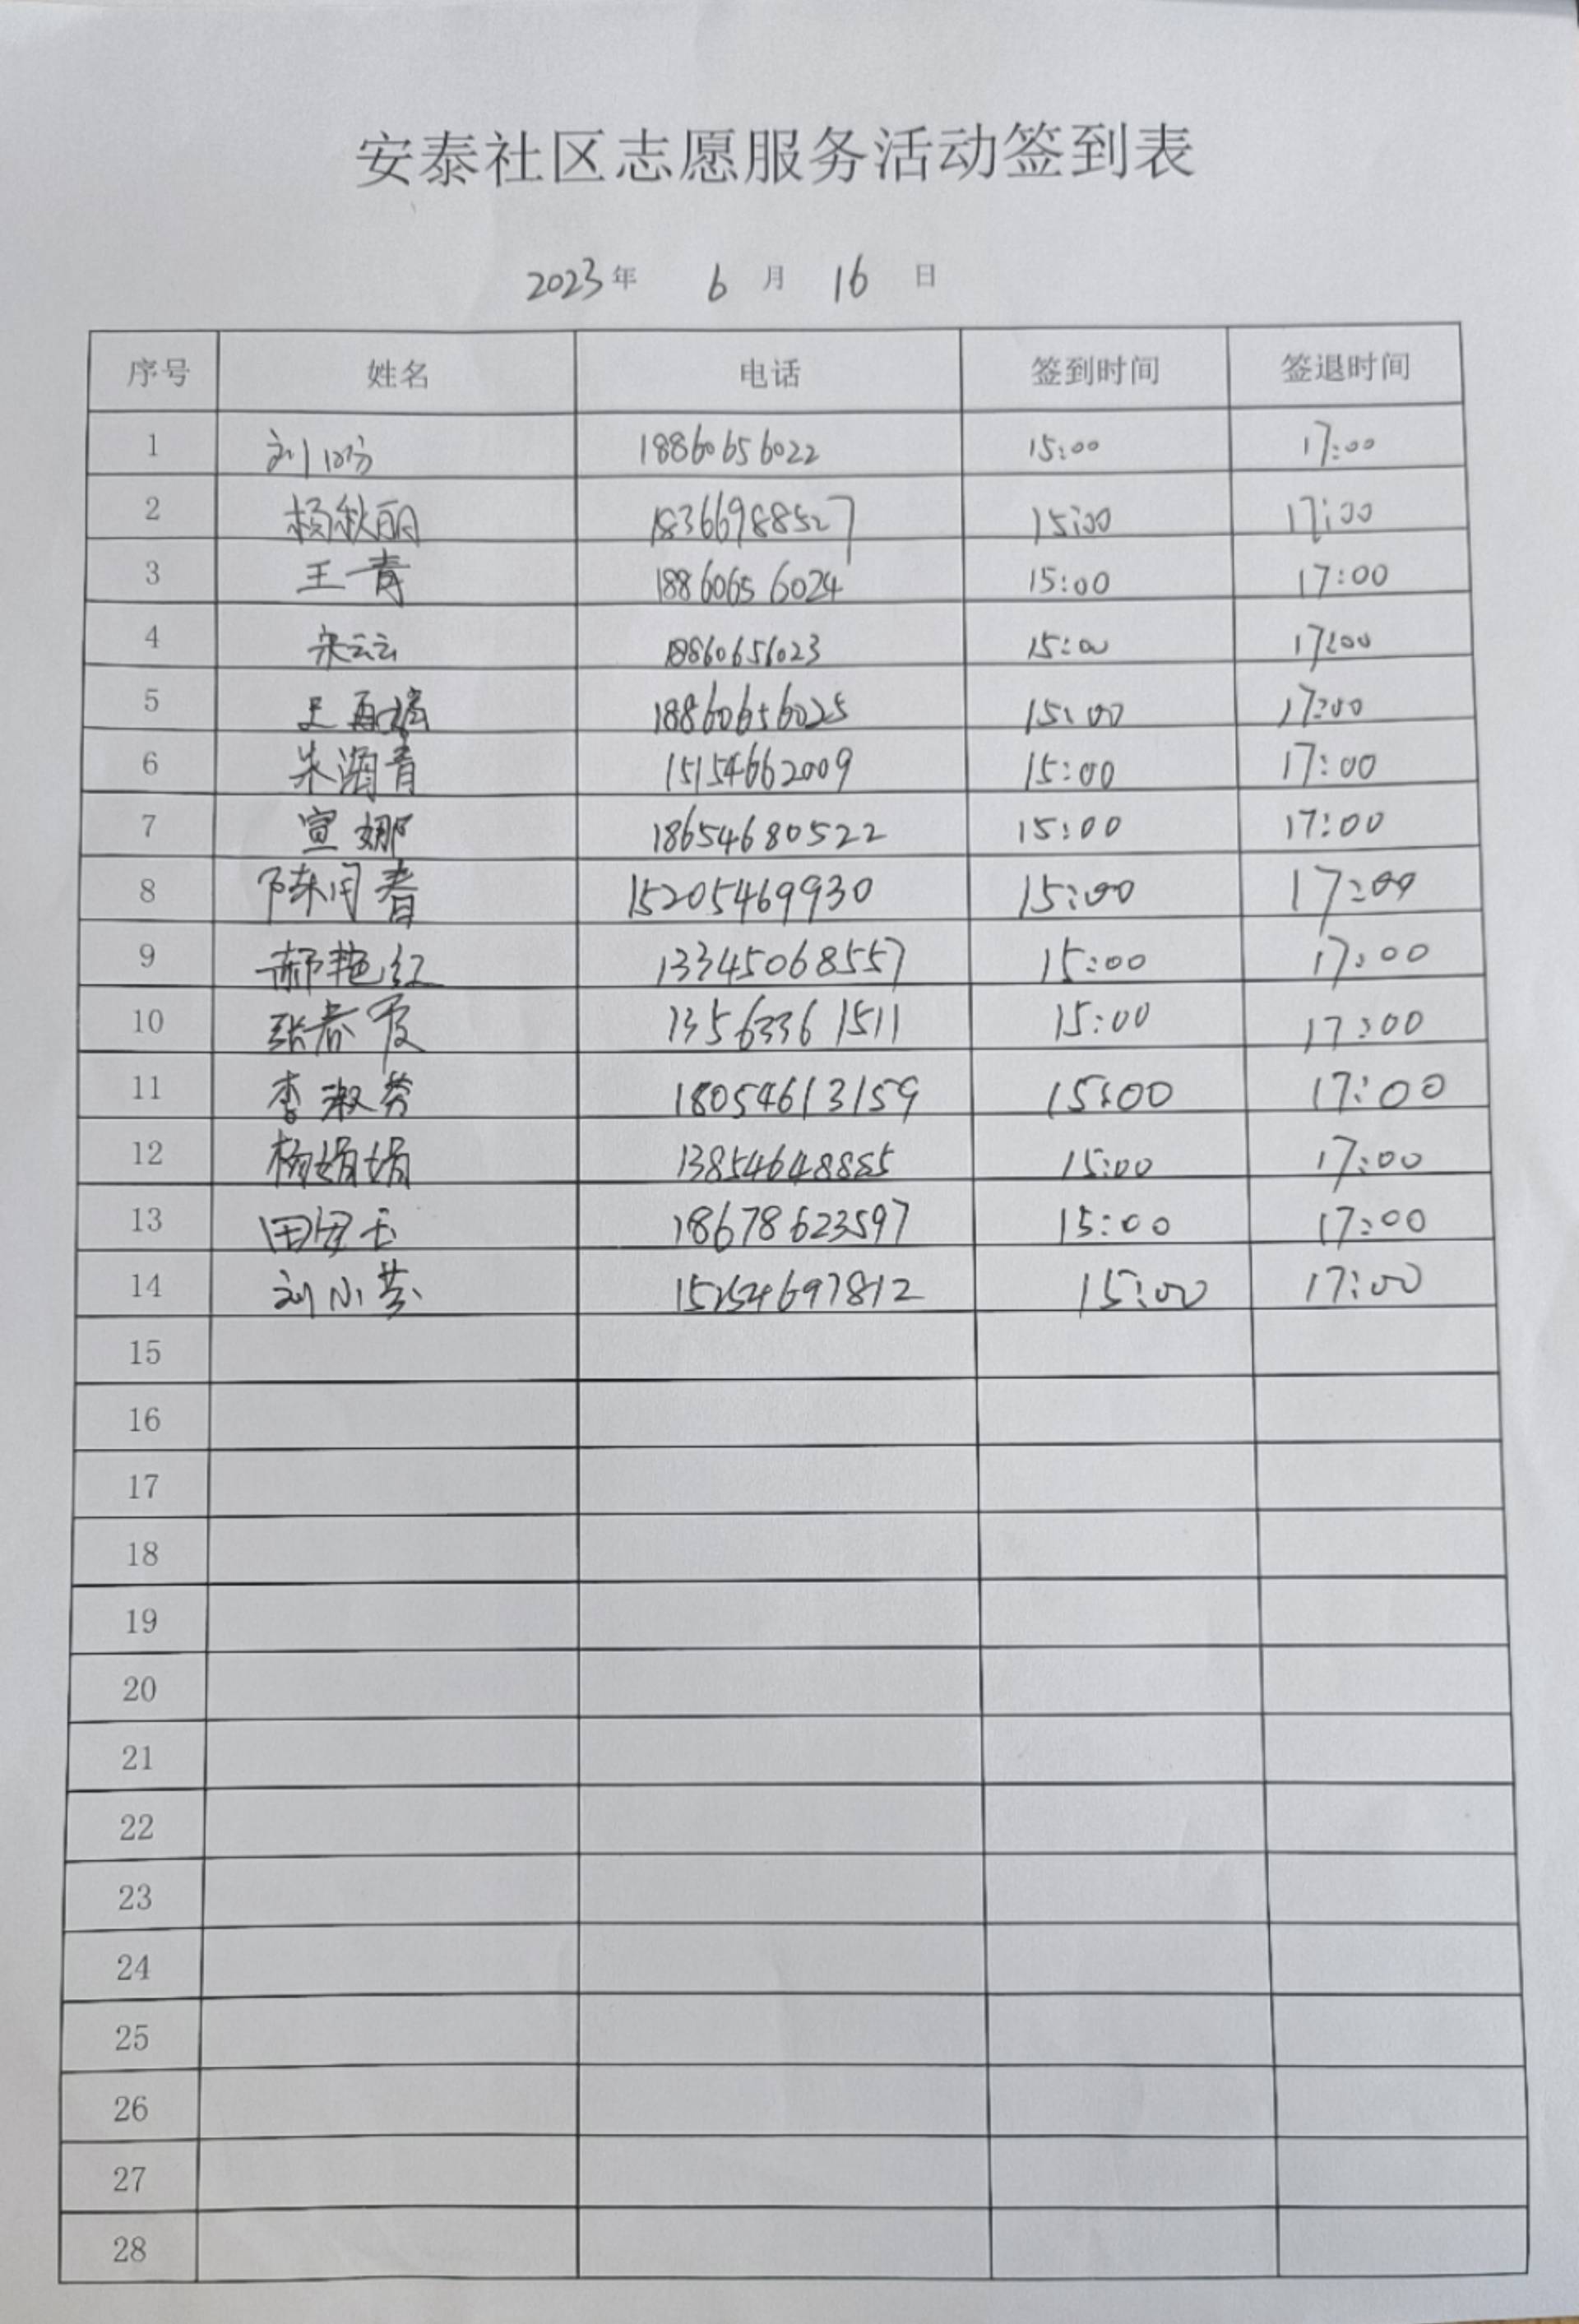 安泰社区志愿服务活动签到表
2023年 6月 16日
序号 姓名 电话 签到时间 签退时间
1 刘 18860656022 15:00 17:00
2 杨秋丽 18366988527 15:00 17:00
3 王青 18860656024 15:00 17:00
4 宋云云 18860656023 15:00 17:00
5 18860656025 15:00 17:00
6 朱涵青 15154662009 15:00 17:00
7 宣娜 18654680522 15:00 17:00
8 陈同春 15205469930 15:00 17:00
9 郝艳红 13345068557 15:00 17:00
10 张春霞 13563361511 15:00 17:00
11 李淑芳 18054613159 15:00 17:00
12 杨娟娟 13854648885 15:00 17:00
13 田 18678623597 15:00 17:00
14 刘小芸 15254697812 15:00 17:00
15
16
17
18
19
20
21
22
23
24
25
26
27
28